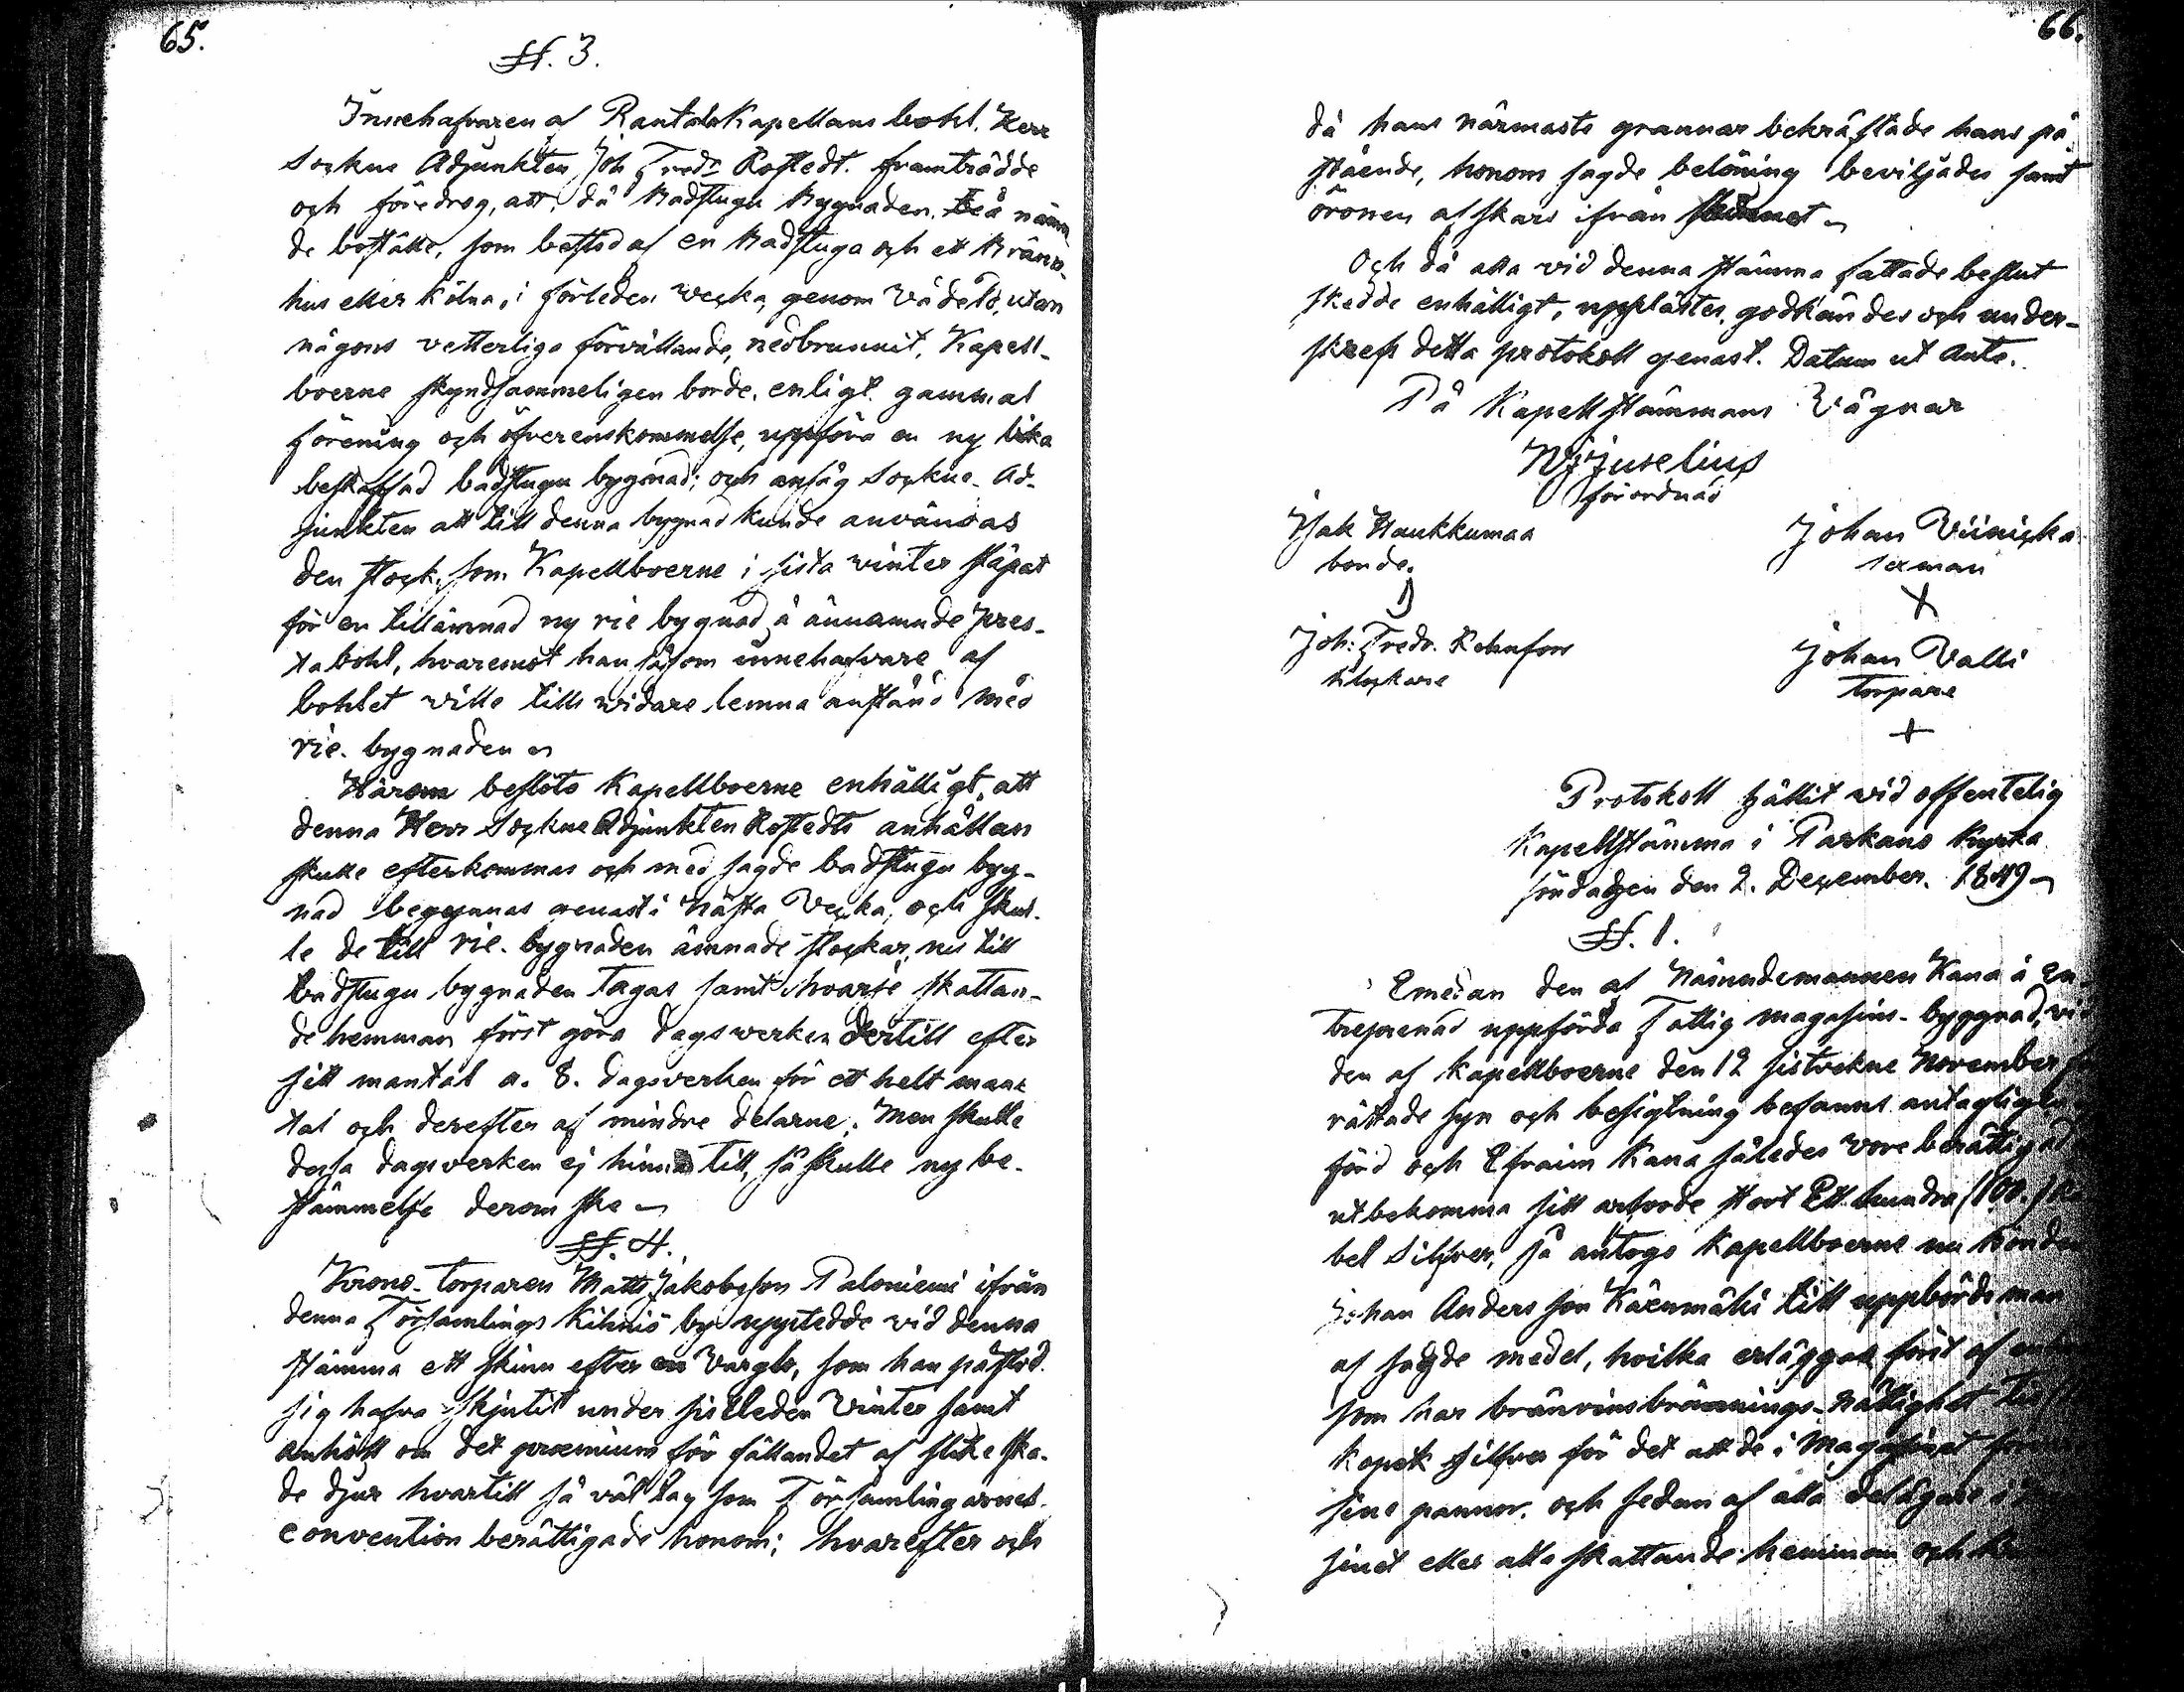 65.
§. 3.
Innehafvaren af Rantala Kapellans bohl. Herr
Sockne Adjunkten Joh Fredr Rostedt. framträdde
och föredrog, att, då Badstugu Bygnaden. å nämn
de boställe, som bestod af en Badstuga och ett Bränn-
hus eller Kölna, i förleden wecka, genom Vådeld, utan
någons vetterliga förvållande, nedbrunnit, Kapell-
boerne skyndsammeligen borde, enligt gammal
förening och öfverenskommelse, uppföra en ny lika
beskaffad badstugu bygnad; och ansåg Sockne-Ad-
junkten att till denna bygnad kunde användas
den stock, som Kapellboerne i sista winter släpat
för en tillämnad ny rie bygnad å ännämnde Pres-
ta bohl, hvaremot han såsom innehafvare af
bohlet ville tills widare lemna anstånd med
rie-bygnaden
Härom beslöto Kapellboerne enhälligt, att
denna Herr Sockne Adjunkten Rostedts anhållan
skulle efterkommas och med sagde badstugu byg-
nad begynnas genast i nästa Vecka, och skul-
le de till rie-bygnaden ämnade stockar, nu till
badstugu bygnaden tagas samt hvarje skattan-
de hemman först göra dagswerken dertill efter
sitt mantal a. 8. dagsverken för ett helt man-
tal och derefter af mindre delarne. Men skulle
dessa dagsverken ej hinna till, så skulle ny be-
stämmelse derom ske
§. 4.
Krono-torparen Matts Jakobsson Paloniemi ifrån
denna Församlings Kihniö by uppredde vid denna
stämma ett skinn efter en Varglo, som han påstod
sig hafva skjutit under sistleden Vinter samt
anhöll om det præmium för fällandet af slike ska-
de djur hvartill så väl lag som Församlingarnes
convention berättigade honom; hvarefter och
66.
då hans närmaste grannar bekräftade hans på
stående, honom sagde belöning beviljades samt
öronen afskars ifrån skinnet
Och då alla vid denna stämma fattade beslut
skedde enhälligt, upplästes, godkändes och under-
skrefs detta protokoll genast. Datum ut Ante.
På Kapellstämmans Vägnar
Wjuselius
förordnad
Isak Haukkumaa
bonde.
Johan Viinicka
sexman
Joh: Fredr.
klockare
Johan Valli
torpare
Protokoll hållit wid offentelig
Kapellstämma i Parkano Kyrka
söndagen den 2. December. 1849
§. 1.
Emedan den af Nämndemannen Kana å En-
treprenad uppförda Fattig magasins-byggnad, vid
den af Kapellboerne den 12 sistvekne November
rättade syn och besigtning befanns antagligen
förd och Efraim Kana således vore berättigad
utbekomma sitt arfvode stort Ett hundra (100.)
bel Silfver, så antogs Kapellboerne nu
Johan Andersson Käenmäki till uppbördsman
af sagde medel, hvilka erläggas först af
som har bränvinsbrännings-Rättighet
kopek silfver för det att de i Magasinet
sine pannor. och sedan af alla delägare i
sinet eller alla skattande hemman och